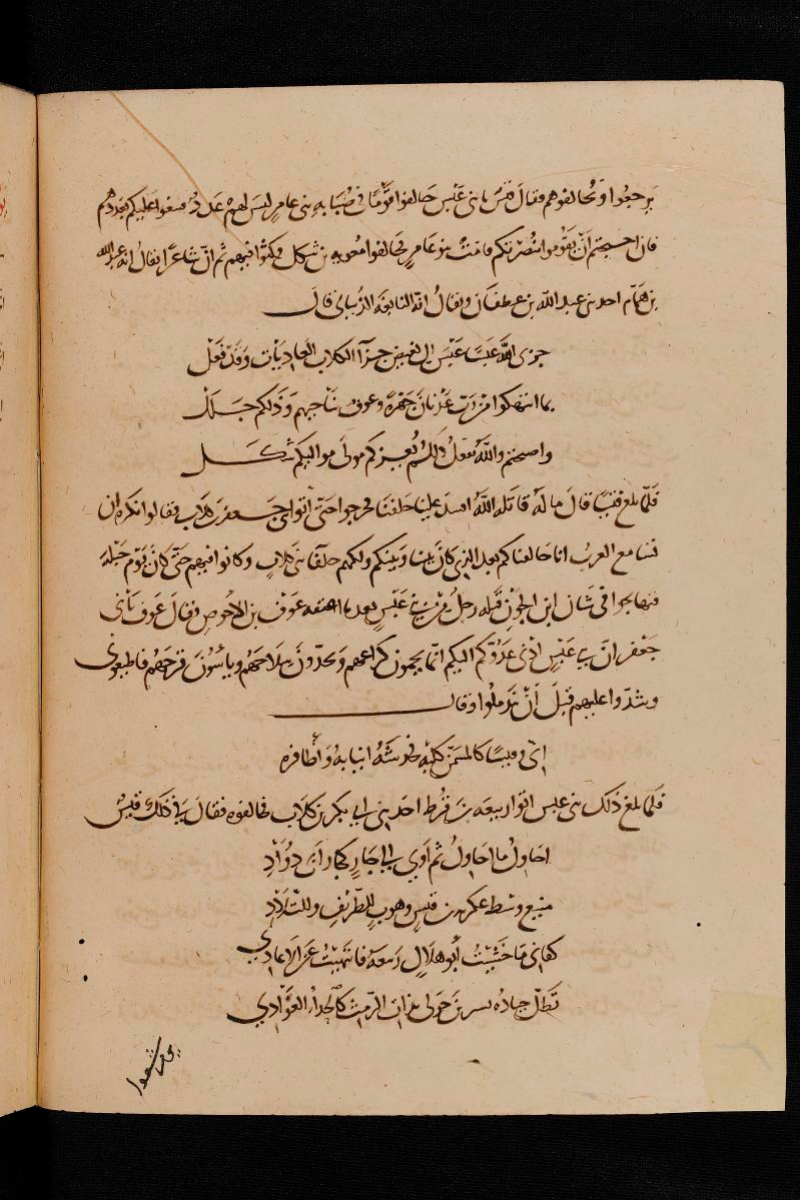 يرجعوا وتحالفوهم فقال قيس يا بني عبس حالفوا قومًا في صبابه بني عامر ليس لهم عدد فيبغوا عليكم بعددهم
فان احتجتم أن يقوموا بنصرتكم قامت بنو عامر فحالفوا معويه بن شكل فمكثوا فيهم ثم انّ شاعرا يقال انه عبد الله
بن همام احد بني عبد الله بن غطفان ويقال انّه النابغه الذبياني قال
جزى الله عبسًا عبس ال بغيض جزآ الكلاب العاديات وقد فعل
بما انتهكوا من رب عدنان جهرة وعوف يناجيهم وذلكم جلل
واصبحتم والله يفعل ذالكم يعزكم مولى مواليكم شكل
فلما بلغ قيسًا قال ما له قاتله الله افسد علينا حلفنا فخرجوا حتى أتوا بني جعفر بن كلاب فقالوا نكره ان
تتسامع العرب انا حالفناكم بعد الذي كان بيننا وبينكم ولكنهم حلفا بني كلاب وكانوا فيهم حتى كان يوم جبلة
فتهايجوا في شان ابن الجون قتله رجل من بني عبس بعد ما اعتقه عوف بن الاحوص فقال عوف يا بني
جعفر ان بني عبس ادنى عدوكم اليكم انما يجمون كراعهم ويحدّون سلاحهم ويأسون قرحهم فاطيعوني
وشدّوا عليهم قبل أن يندملوا وقال
اني وقيسًا كالمسمّن كلبه فخدشه انيابه وأظافره
فلما بلغ ذلك بني عبس اتوا ربيعه بن قرط احد بني ابي بكر بن كلاب فحالفوه فقال في ذلك قيس
احاول ما احاول ثم آوي الى جار كجار ابي دؤاد
منيع وسط عكرمه بن قيس وهوب للطريف وللتلاد
كفاني ما خشيت أبو هلال ربيعة فانتهيت عن الاعادي
تظل جياده يسرين حولي بذات الرمث كالحدأ الغوادي